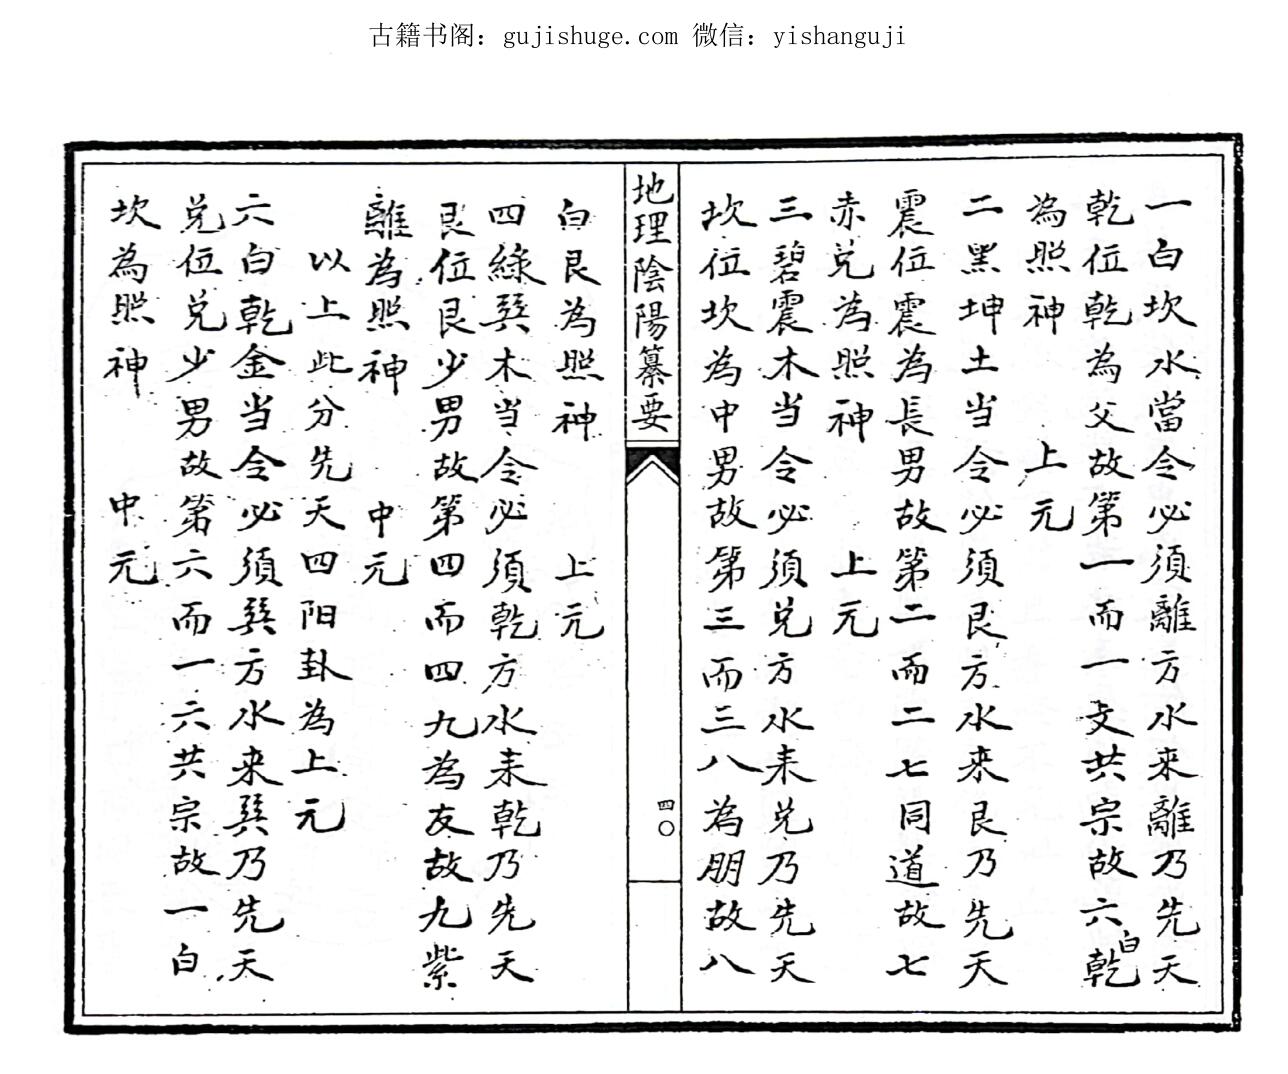 古籍书阁：gujishuge.com 微信：yishanguji
一白坎水當令必須離方水来離乃先天
乾位乾為父故第一而一文共宗故六白乾
為照神　　上元
二黑坤土当令必須艮方水来艮乃先天
震位震為長男故第二而二七同道故七
赤兑為照神　　上元
三碧震木当令必須兑方水来兑乃先天
坎位坎為中男故第三而三八為朋故八
地理陰陽纂要
四〇
白艮為照神　　上元
四綠巽木当令必須乾方水来乾乃先天
艮位艮少男故第四而四九為友故九紫
離為照神　　中元
以上此分先天四阳卦為上元
六白乾金当令必須巽方水来巽乃先天
兑位兑少男故第六而一六共宗故一白
坎為照神　　中元